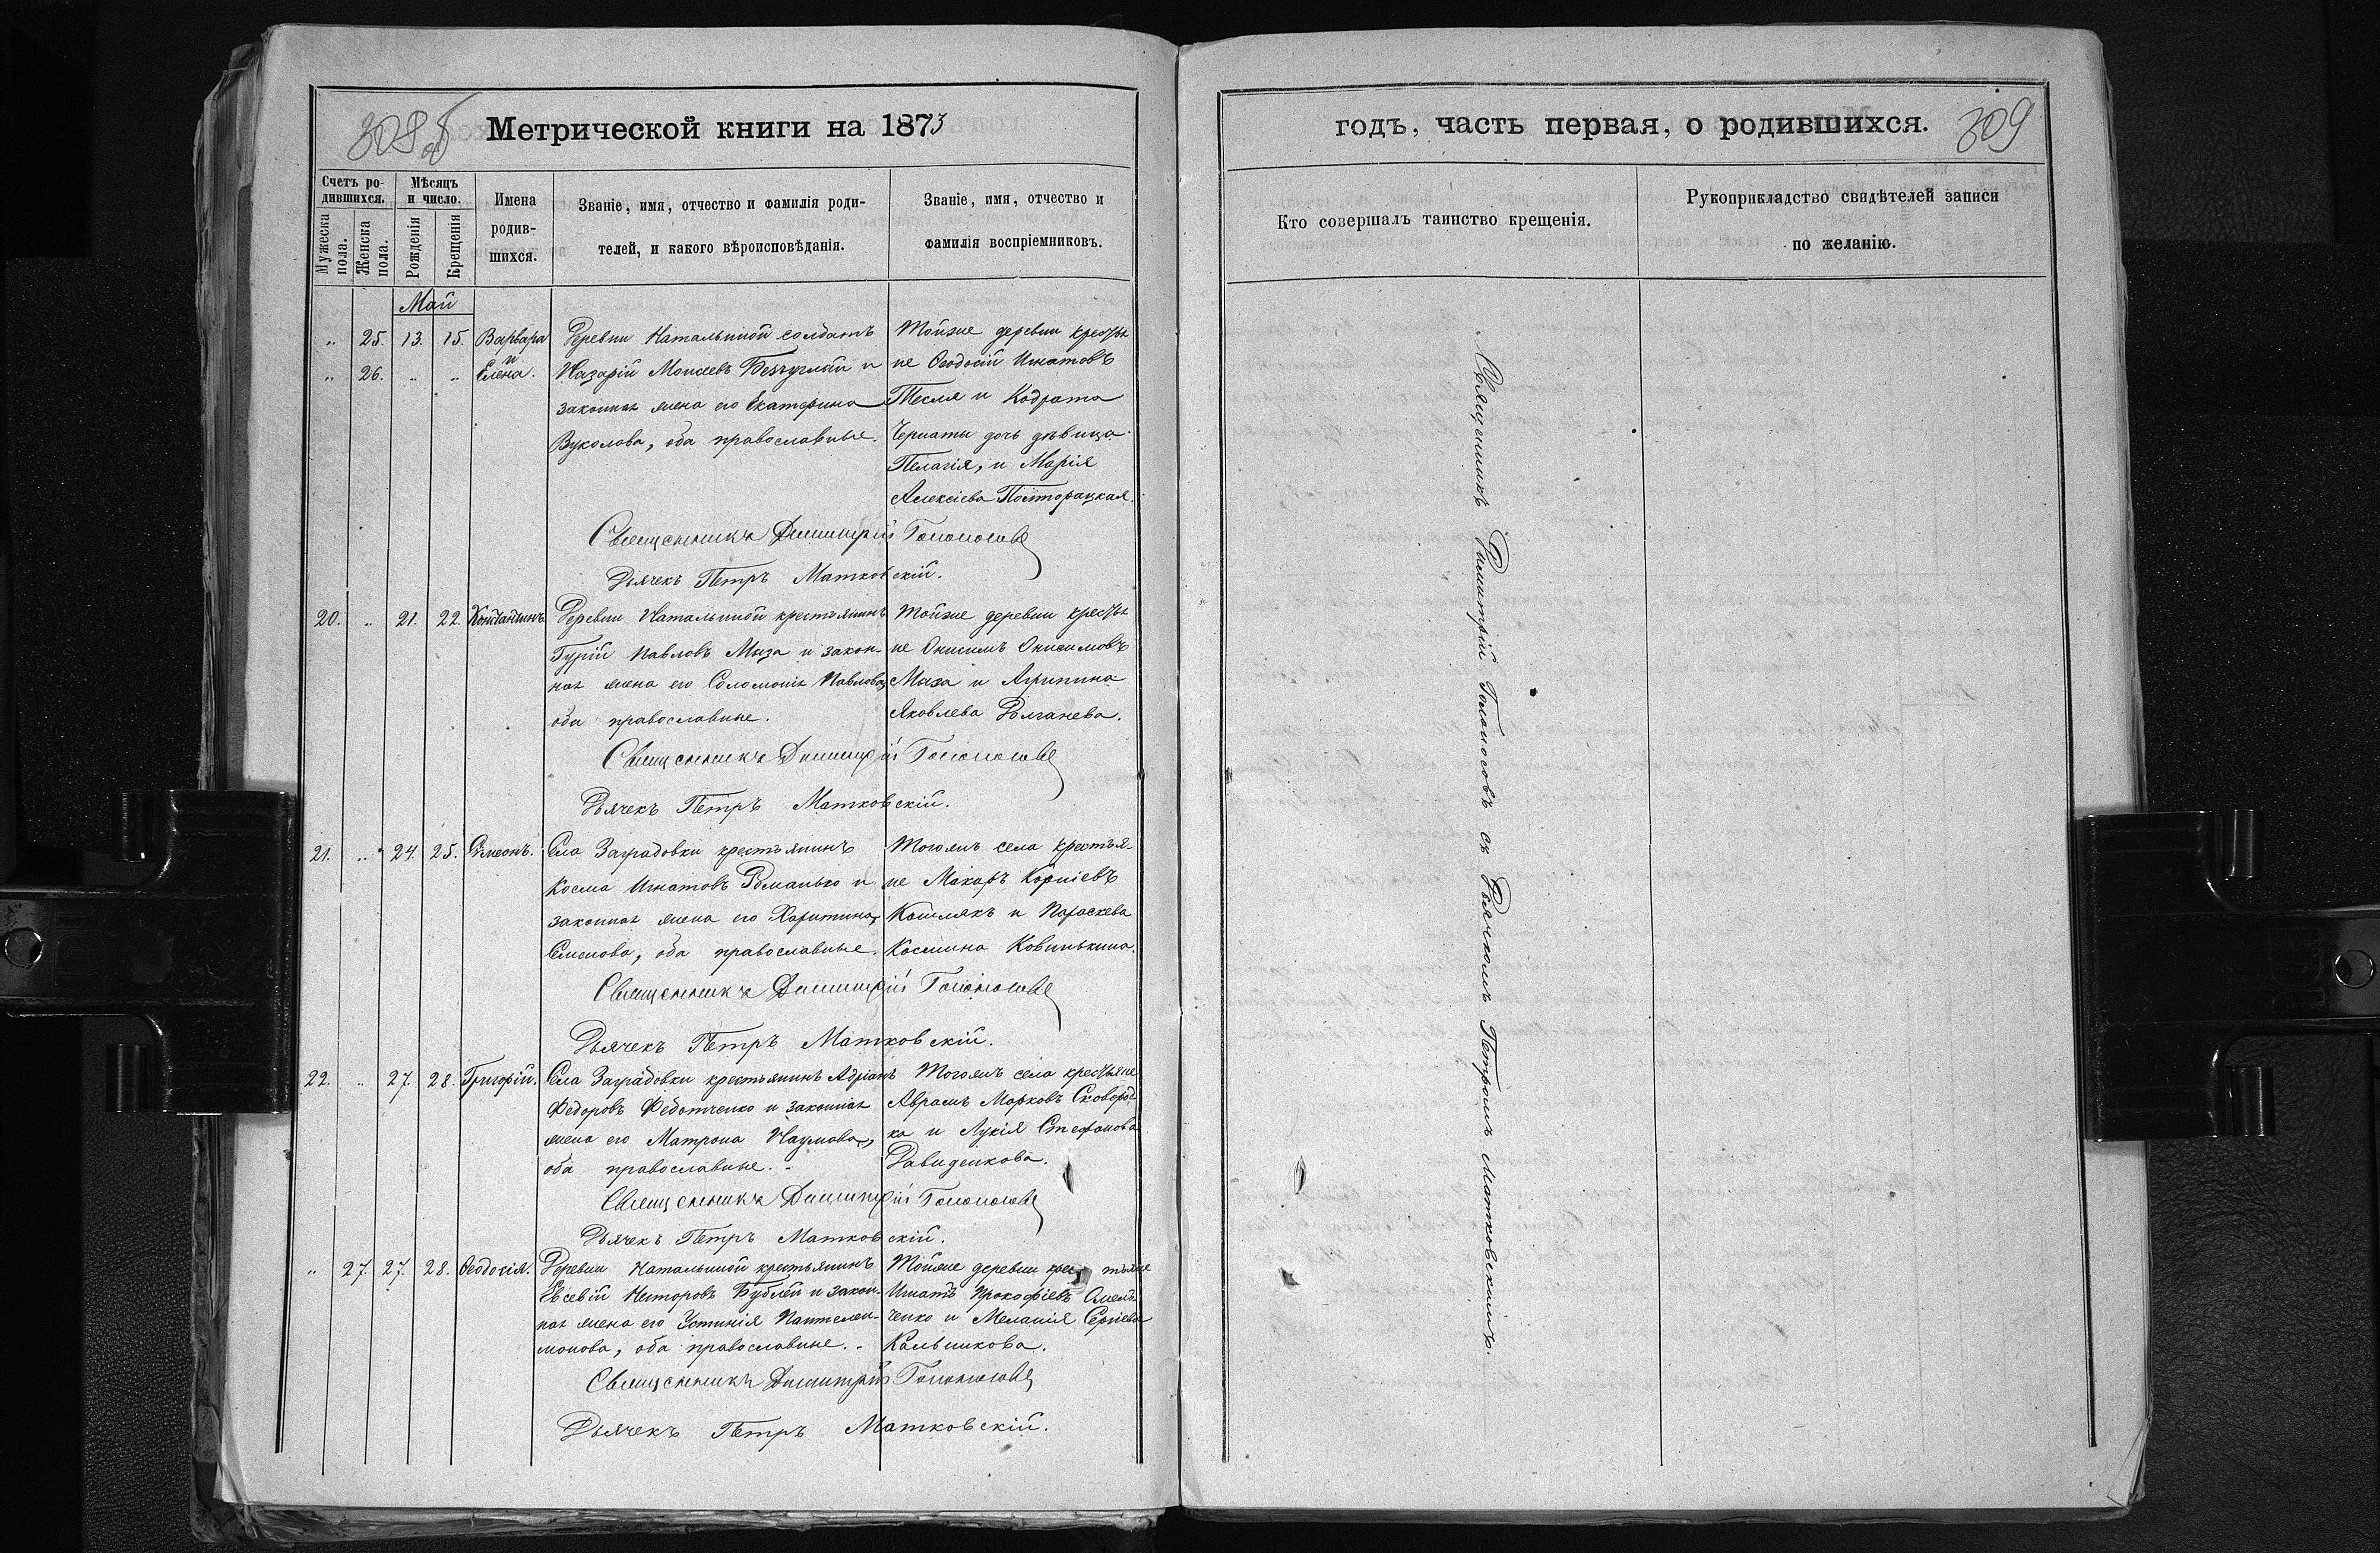 308об
Метрической книги на 1873
Счетъ ро-
дившихся.
Мужеска
пола.
Женска
пола.
Мѣсяцъ
и число.
Рожденія
Крещенія
Имена
родив-
шихся.
Званіе, имя, отчество и фамилія роди-
телей, и какого вѣроисповѣданія.
Званіе, имя, отчество и
фамилія воспріемниковъ.
Май
„ 25. 13. 15. Варвара
и
„ 26. „ „ Елена.
Деревни Натальиной солдатъ
Назарій Моисеевъ Безуглый и
законная жена его Екатерина
Вуколова, оба православные.
Тойже деревни крестья
не Ѳеодосій Игнатовъ
Тесля и Кодрата
Чернаты дочь дѣвица
Пелагія, и Марія
Алексіева Полторацкая.
Священникъ Димитрій Голоносовъ
Дьячекъ Петръ Матковскій.
20. „ 21. 22. Константинъ
Деревни Натальиной крестьянинъ
Гурій Павловъ Мыза и закон-
ная жена его Соломонія Павлова,
оба православные.
Тойже деревни крестья
не Онисимъ Онисимовъ
Мыза и Агрипина
Яковлева Долганева.
Священникъ Димитрій Голоносовъ
Дьячекъ Петръ Матковскій.
21. „ 24. 25. Симеонъ.
Села Заградовки крестьянинъ
Косма Игнатовъ Романько и
законная жена его Харитина
Семенова, оба православные.
Тогожъ села крестья-
не Макаръ Корніевъ
Кошлякъ и Параскева
Космина Ковинькина.
Священникъ Димитрій Голоносовъ
Дьячекъ Петръ Матковскій.
22. „ 27. 28. Григорій.
Села Заградовки крестьянинъ Адріанъ
Федоровъ Федотченко и законная
жена его Матрона Наумова,
оба православные.
Тогожъ села крестьяне
Аврамъ Марковъ Сковород
ка и Лукія Стефанова
Давиденкова.
Священникъ Димитрій Голоносовъ
Дьячекъ Петръ Матковскій.
„ 27. 27. 28. Ѳеодосія.
Деревни Натальиной крестьянинъ
Евсевій Несторовъ Бублей и закон-
ная жена его Устинія Пантелеи-
монова, оба православные.
Тойже деревни крестьяне
Игнатъ Прокофіевъ Омель
ченко и Меланія Сергіева
Кальникова.
Священникъ Димитрій Голоносовъ
Дьячекъ Петръ Матковскій.
годъ, часть первая, о родившихся.
309
Кто совершалъ таинство крещенія.
Рукоприкладство свидѣтелей записи
по желанію.
Священникъ Димитрій Голоносовъ съ Дьячкомъ Петромъ Матковскимъ.